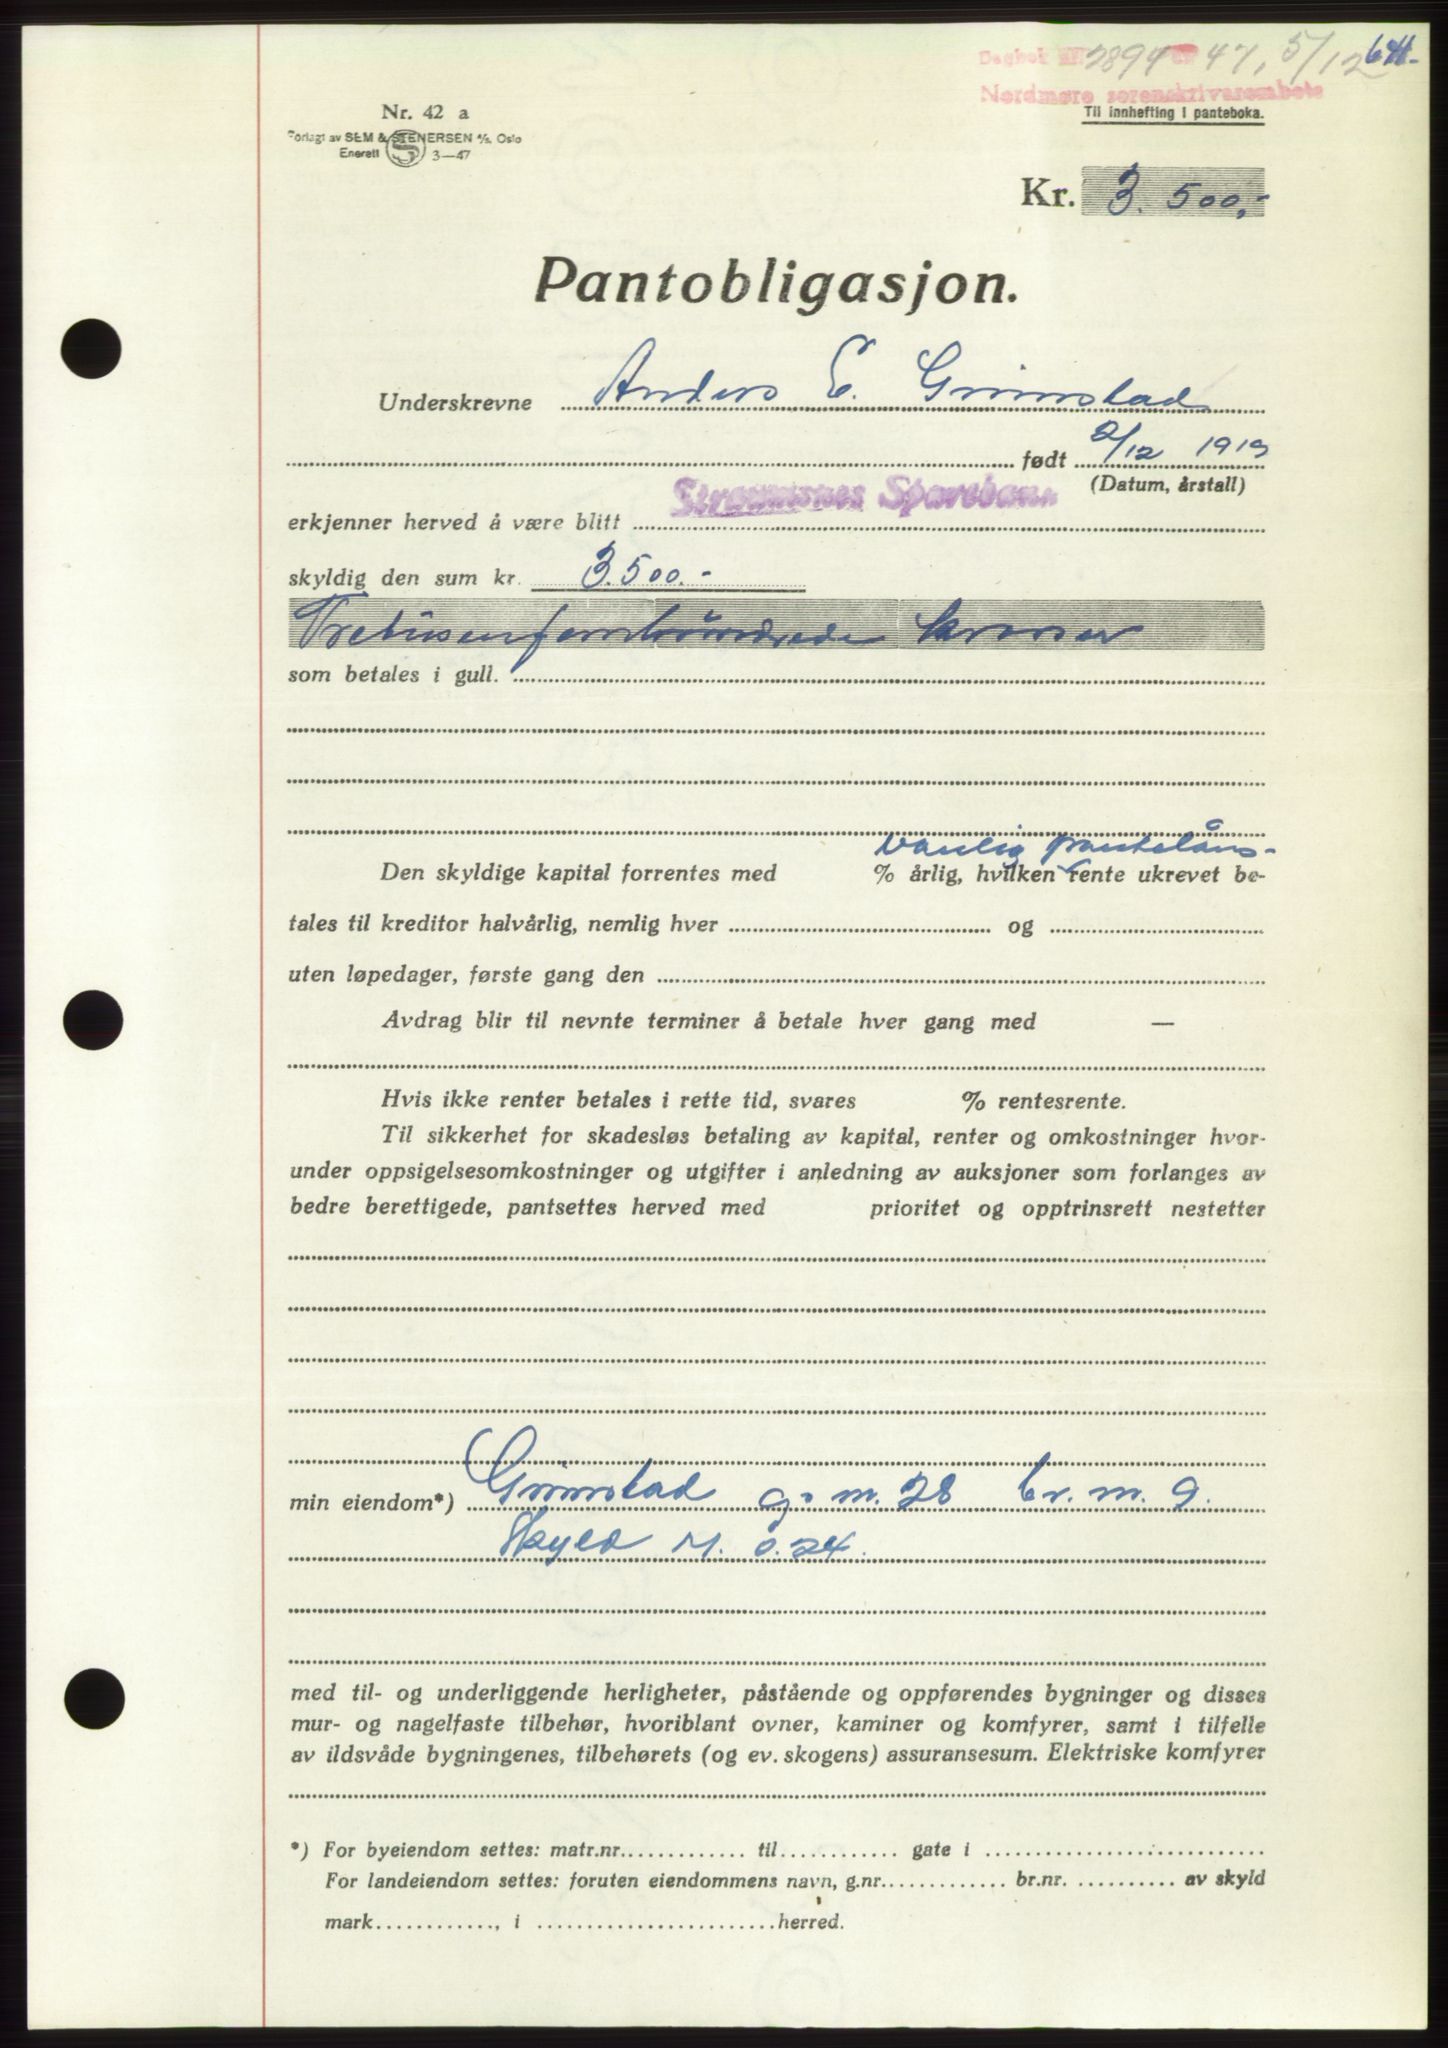 Dagbok nr. 2894 19 47, 5/12 641.
Nordmøre sorenskrivarembete
Til innhefting i panteboka.
Nr. 42 a
Forlagt av SEM & STENERSEN A/S. Oslo
Enerett S 3—47
Kr. 3.500,-
Pantobligasjon.
Underskrevne Anders E. Grimstad
født 2/12 1919
(Datum, årstall)
erkjenner herved å være blitt Straumsnes Sparebank
skyldig den sum kr. 3.500.-
Tretusenfemhundrede kroner
som betales i gull.
vanlig pantelåns-
Den skyldige kapital forrentes med % årlig, hvilken rente ukrevet be-
tales til kreditor halvårlig, nemlig hver og
uten løpedager, første gang den
Avdrag blir til nevnte terminer å betale hver gang med —
Hvis ikke renter betales i rette tid, svares % rentesrente.
Til sikkerhet for skadesløs betaling av kapital, renter og omkostninger hvor-
under oppsigelsesomkostninger og utgifter i anledning av auksjoner som forlanges av
bedre berettigede, pantsettes herved med prioritet og opptrinsrett nestetter
min eiendom*) Grimstad g.nr. 28 br.nr. 9.
Skyld M. 0.24.
med til- og underliggende herligheter, påstående og oppførendes bygninger og disses
mur- og nagelfaste tilbehør, hvoriblant ovner, kaminer og komfyrer, samt i tilfelle
av ildsvåde bygningenes, tilbehørets (og ev. skogens) assuransesum. Elektriske komfyrer
*) For byeiendom settes: matr.nr. til gate i
For landeiendom settes: foruten eiendommens navn, g.nr. br.nr. av skyld
mark , i herred.